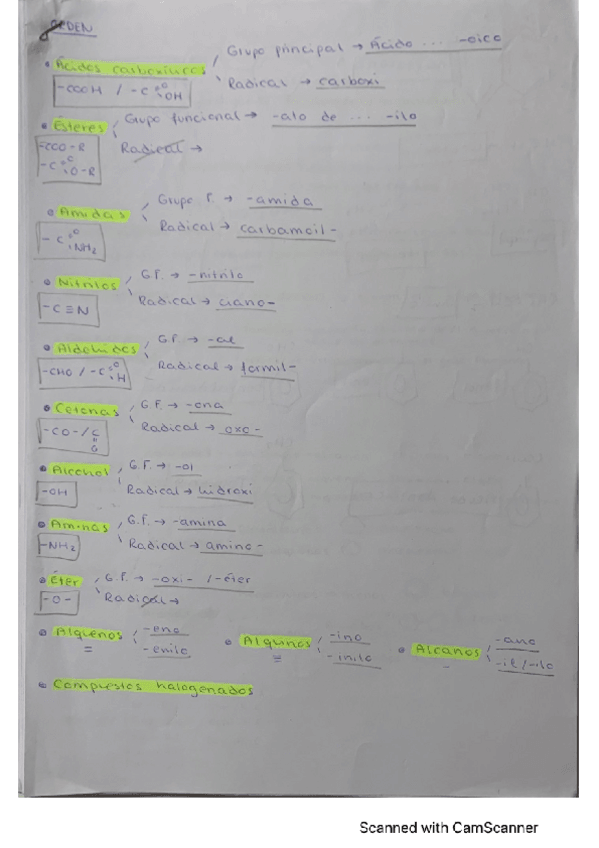 ORDEN
• Ácidos carboxílicos
Grupo principal → Ácido ... -oico
Radical → carboxi
-COOH / -C=O OH
• Ésteres
Grupo funcional → -ato de ... -ilo
Radical →
-COO-R
-C=O O-R
• Amidas
Grupo F. → -amida
Radical → carbamoil-
-C=O NH₂
• Nitrilos
G.F. → -nitrilo
Radical → ciano-
-C≡N
• Aldehidos
G.F. → -al
Radical → formil-
-CHO / -C=O H
• Cetonas
G.F. → -ona
Radical → oxo-
-CO- / C=O
• Alcohol
G.F. → -ol
Radical → hidroxi
-OH
• Aminas
G.F. → -amina
Radical → amino-
-NH₂
• Éter
G.F. → -oxi- / -éter
Radical →
-O-
• Alquenos -eno -enilo =
• Alquinos -ino -inilo ≡
• Alcanos -ano -il/-ilo -
• Compuestos halogenados
Scanned with CamScanner